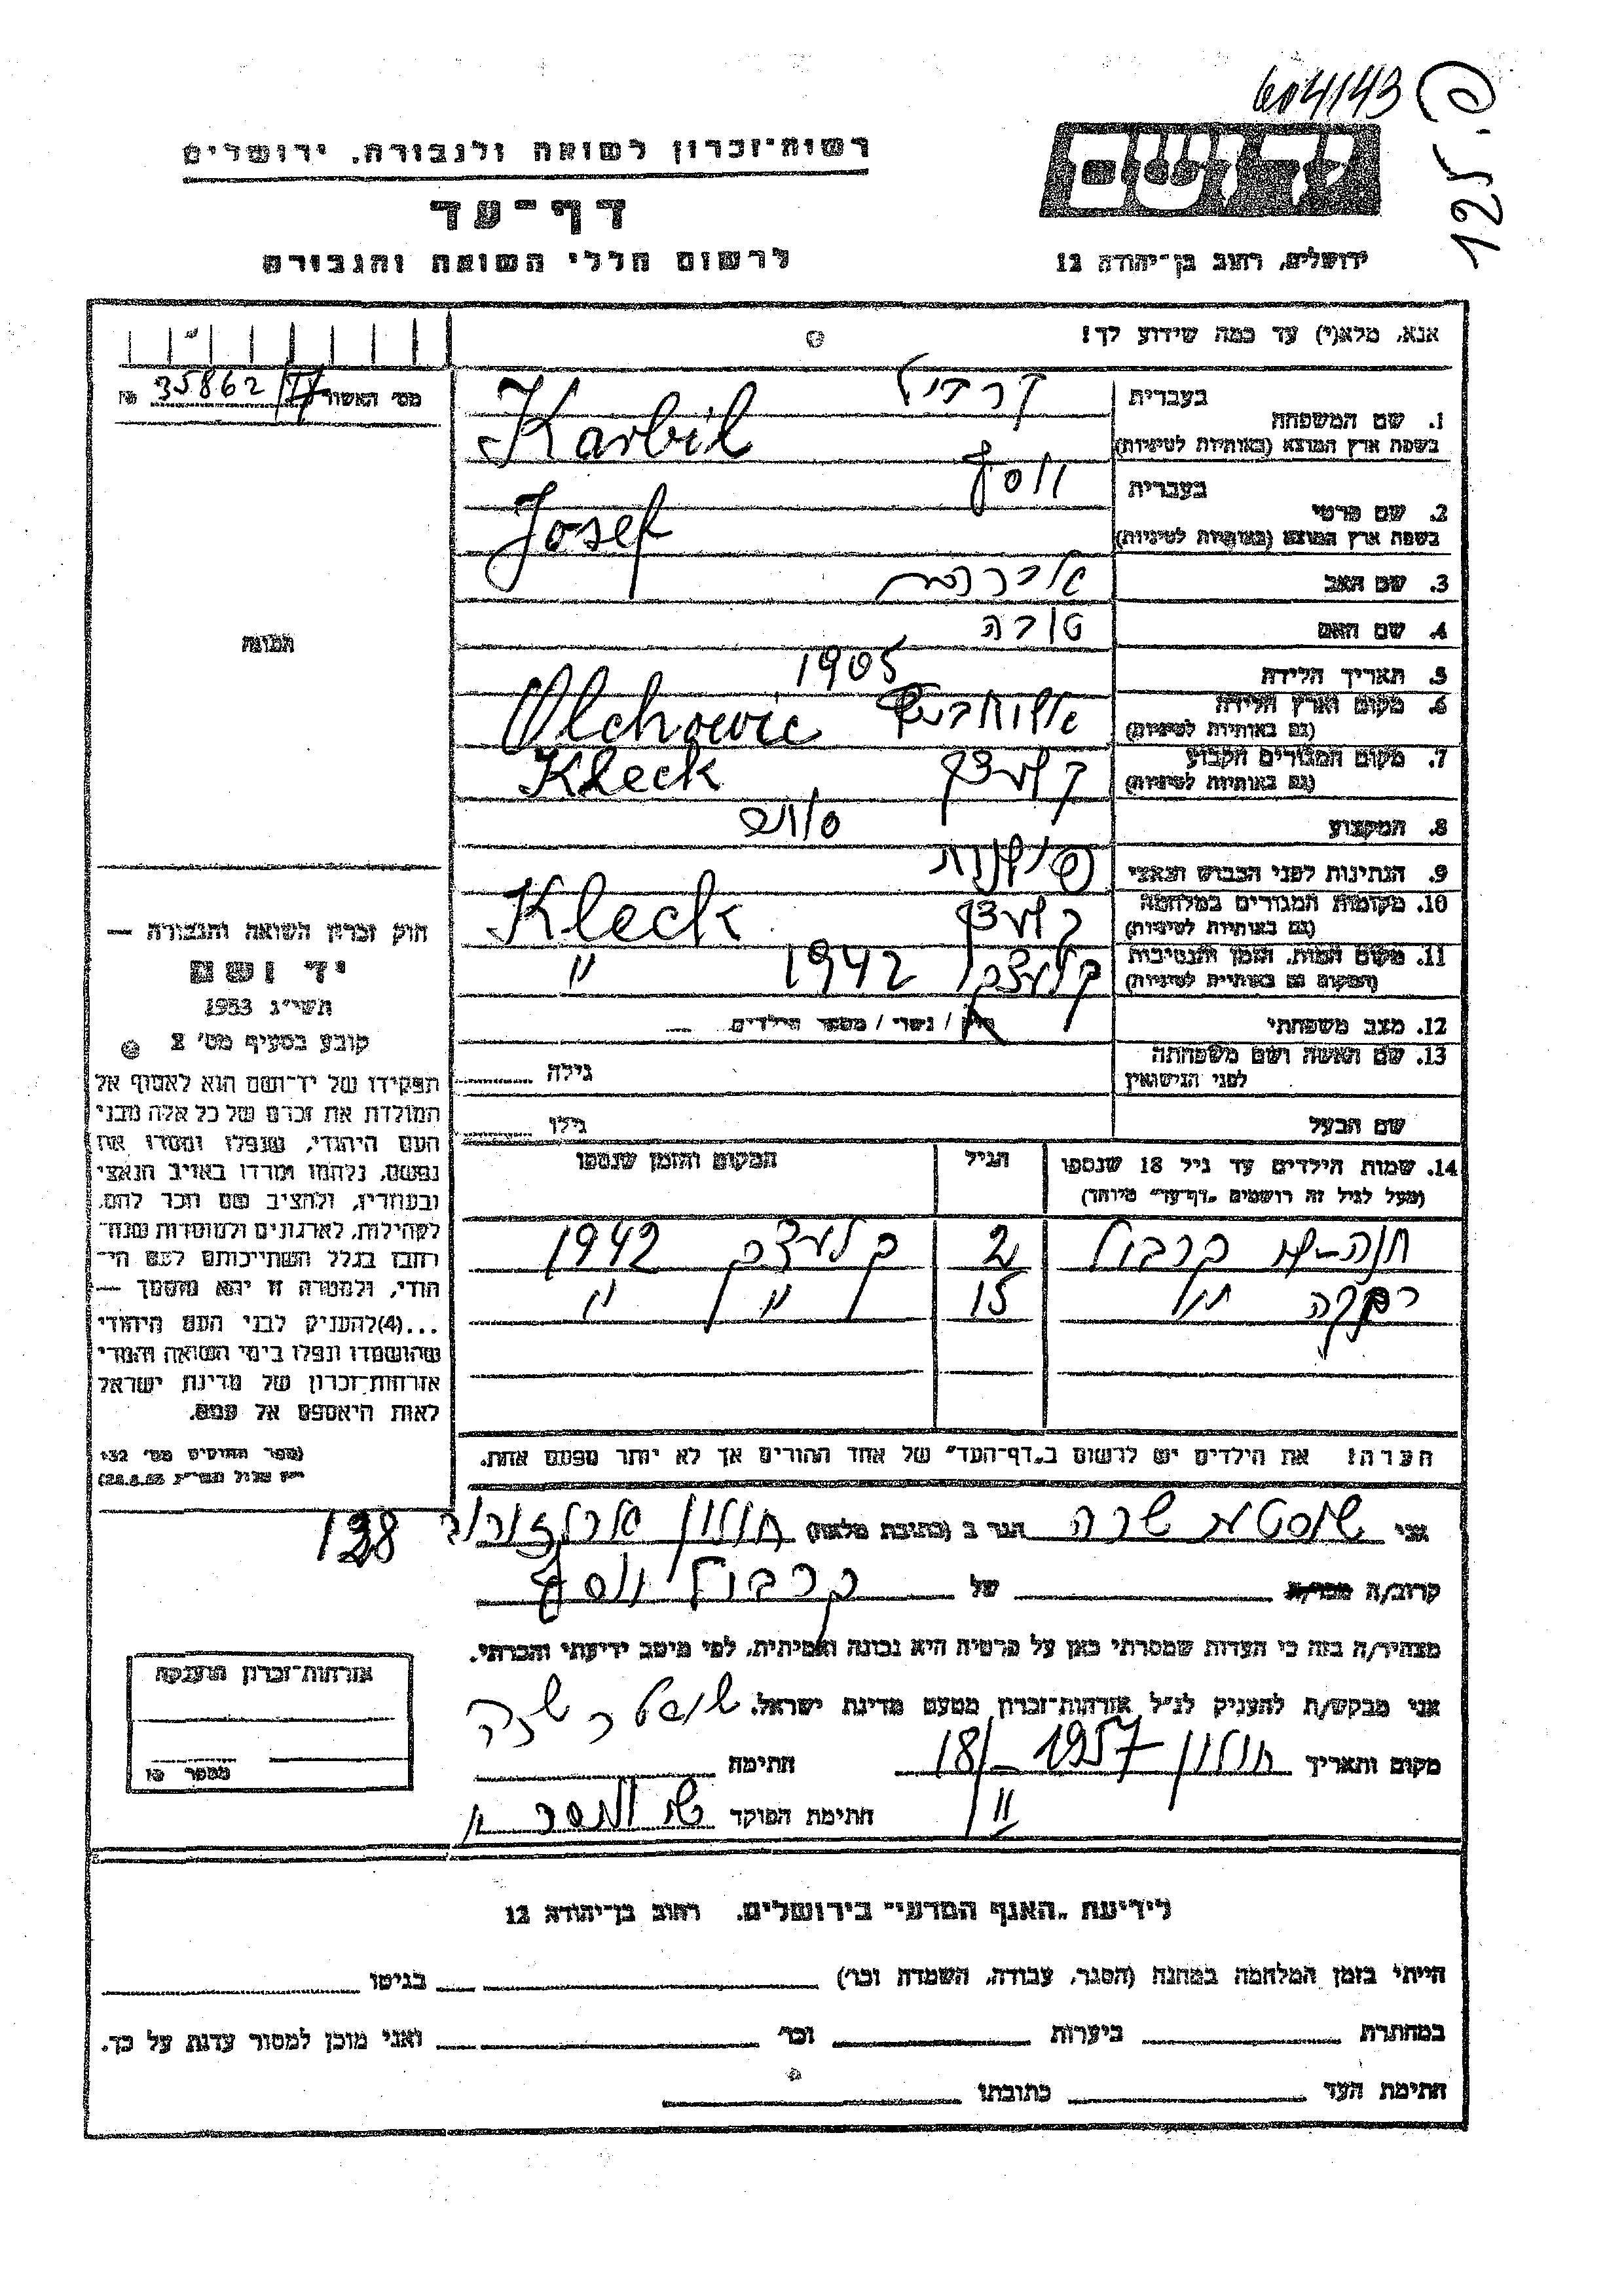 604143
125.
רשות-זכרון לשואה ולגבורה, ירושלים
דף-עד
לרשום חללי השואה והגבורה
ירושלים, רחוב בן-יהודה 12
אנא, מלא(י) עד כמה שידוע לך!
מס׳ האשור 35862
1. שם המשפחה
בעברית
בשפת ארץ המוצא (באותיות לטיניות)
Karbil
2. שם פרטי
בעברית יוסף
בשפת ארץ המוצא (באותיות לטיניות)
Josef
3. שם האב
4. שם האם
5. תאריך הלידה 1905
6. מקום וארץ הלידה
(גם באותיות לטיניות)
Olchowic
7. מקום המגורים הקבוע
(גם באותיות לטיניות) קלצק Kleck
8. המקצוע סוחר
9. הנתינות לפני הכבוש הנאצי פולנית
10. מקומות המגורים במלחמה
(גם באותיות לטיניות) קלצק Kleck
11. מקום המות, הזמן והנסיבות
(המקום גם באותיות לטיניות) קלצק 1942 "
12. מצב משפחתי רוק / נשוי / מספר הילדים
13. שם האשה ושם משפחתה
לפני הנישואין
גילה
שם הבעל גילו
14. שמות הילדים עד גיל 18 שנספו הגיל המקום והזמן שנספו
(מעל לגיל זה רושמים „דף-עד" מיוחד)
קרבול קלצק 1942
רבקה " 15 " "
הערה! את הילדים יש לרשום ב„דף-העד" של אחד ההורים אך לא יותר מפעם אחת.
תמונה
חוק זכרון השואה והגבורה —
יד ושם
תשי״ג 1953
קובע בסעיף מס׳ 2
תפקידו של יד-ושם הוא לאסוף אל
המולדת את זכרם של כל אלה מבני
העם היהודי, שנפלו ומסרו את
נפשם, נלחמו ומרדו באויב הנאצי
ובעוזריו, ולהציב שם וזכר להם,
לקהילות, לארגונים ולמוסדות שנח־
רבו בגלל השתייכותם לעם הי־
הודי, ולמטרה זו יהא מוסמך —
...(4) להעניק לבני העם היהודי
שהושמדו ונפלו בימי השואה והמרי
אזרחות-זכרון של מדינת ישראל
לאות היאספם אל עמם.
(ספר החוקים מס׳ 132
אני שרה הגר ב (כתובת מלאה) חולון 138
קרוב/ה מכר/ה של קרבול יוסף
מצהיר/ה בזה כי העדות שמסרתי כאן על פרטיה היא נכונה ואמיתית, לפי מיטב ידיעתי והכרתי.
אני מבקש/ת להעניק לנ״ל אזרחות-זכרון מטעם מדינת ישראל.
מקום ותאריך חולון 1957 חתימה
חתימת הפוקד
אזרחות-זכרון הוענקה
מספר
לידיעת „האגף המדעי" בירושלים, רחוב בן-יהודה 12
הייתי בזמן המלחמה במחנה (הסגר, עבודה, השמדה וכו׳) בגיטו
במחתרת ביערות וכו׳ ואני מוכן למסור עדות על כך.
חתימת העד כתובתו